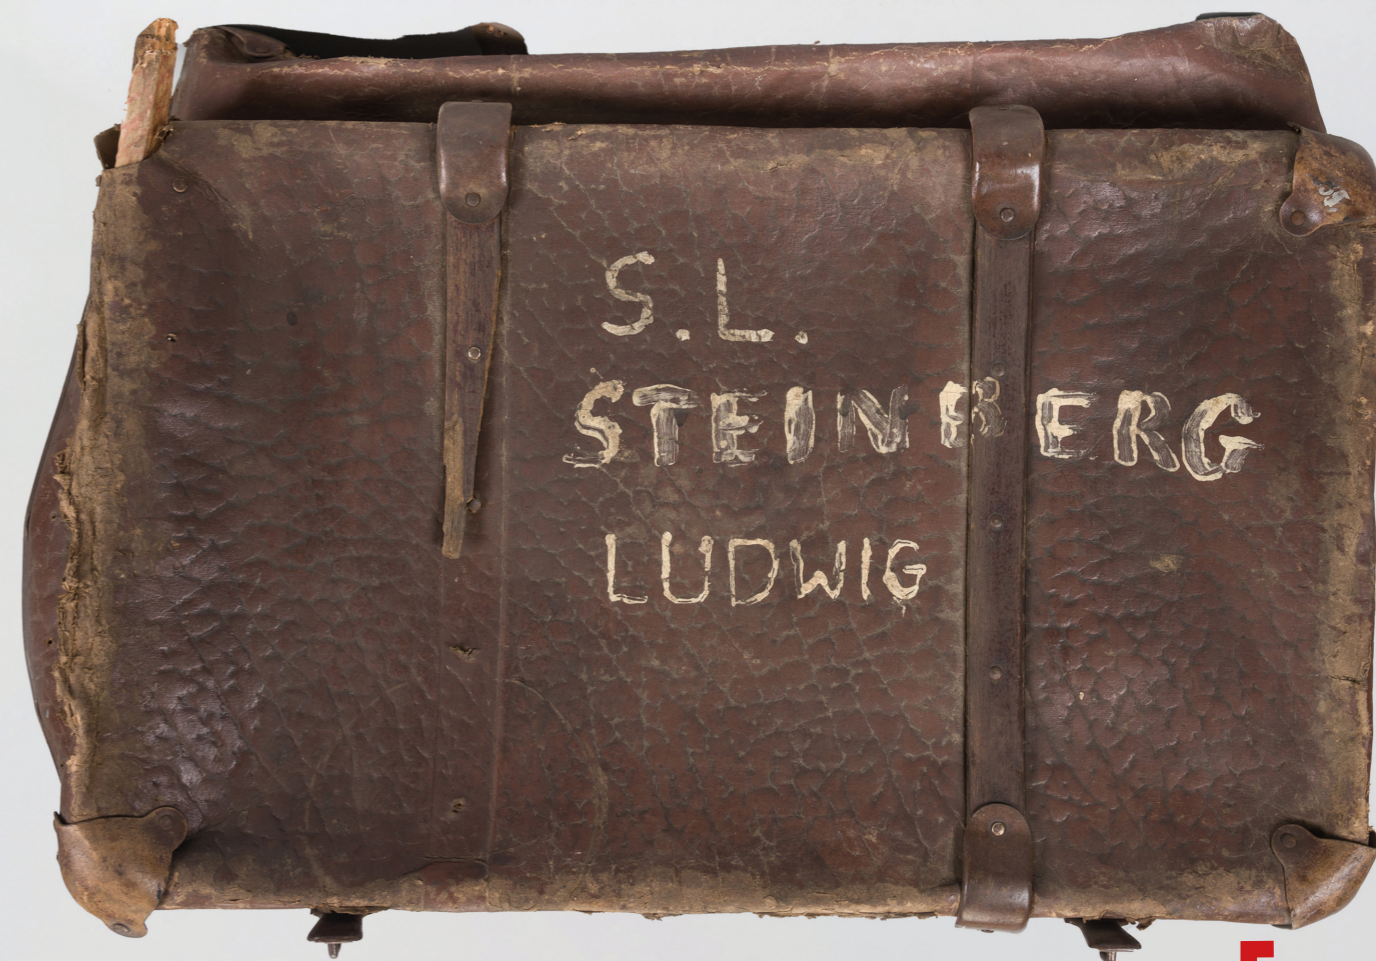 S.L.
STEINBERG
LUDWIG